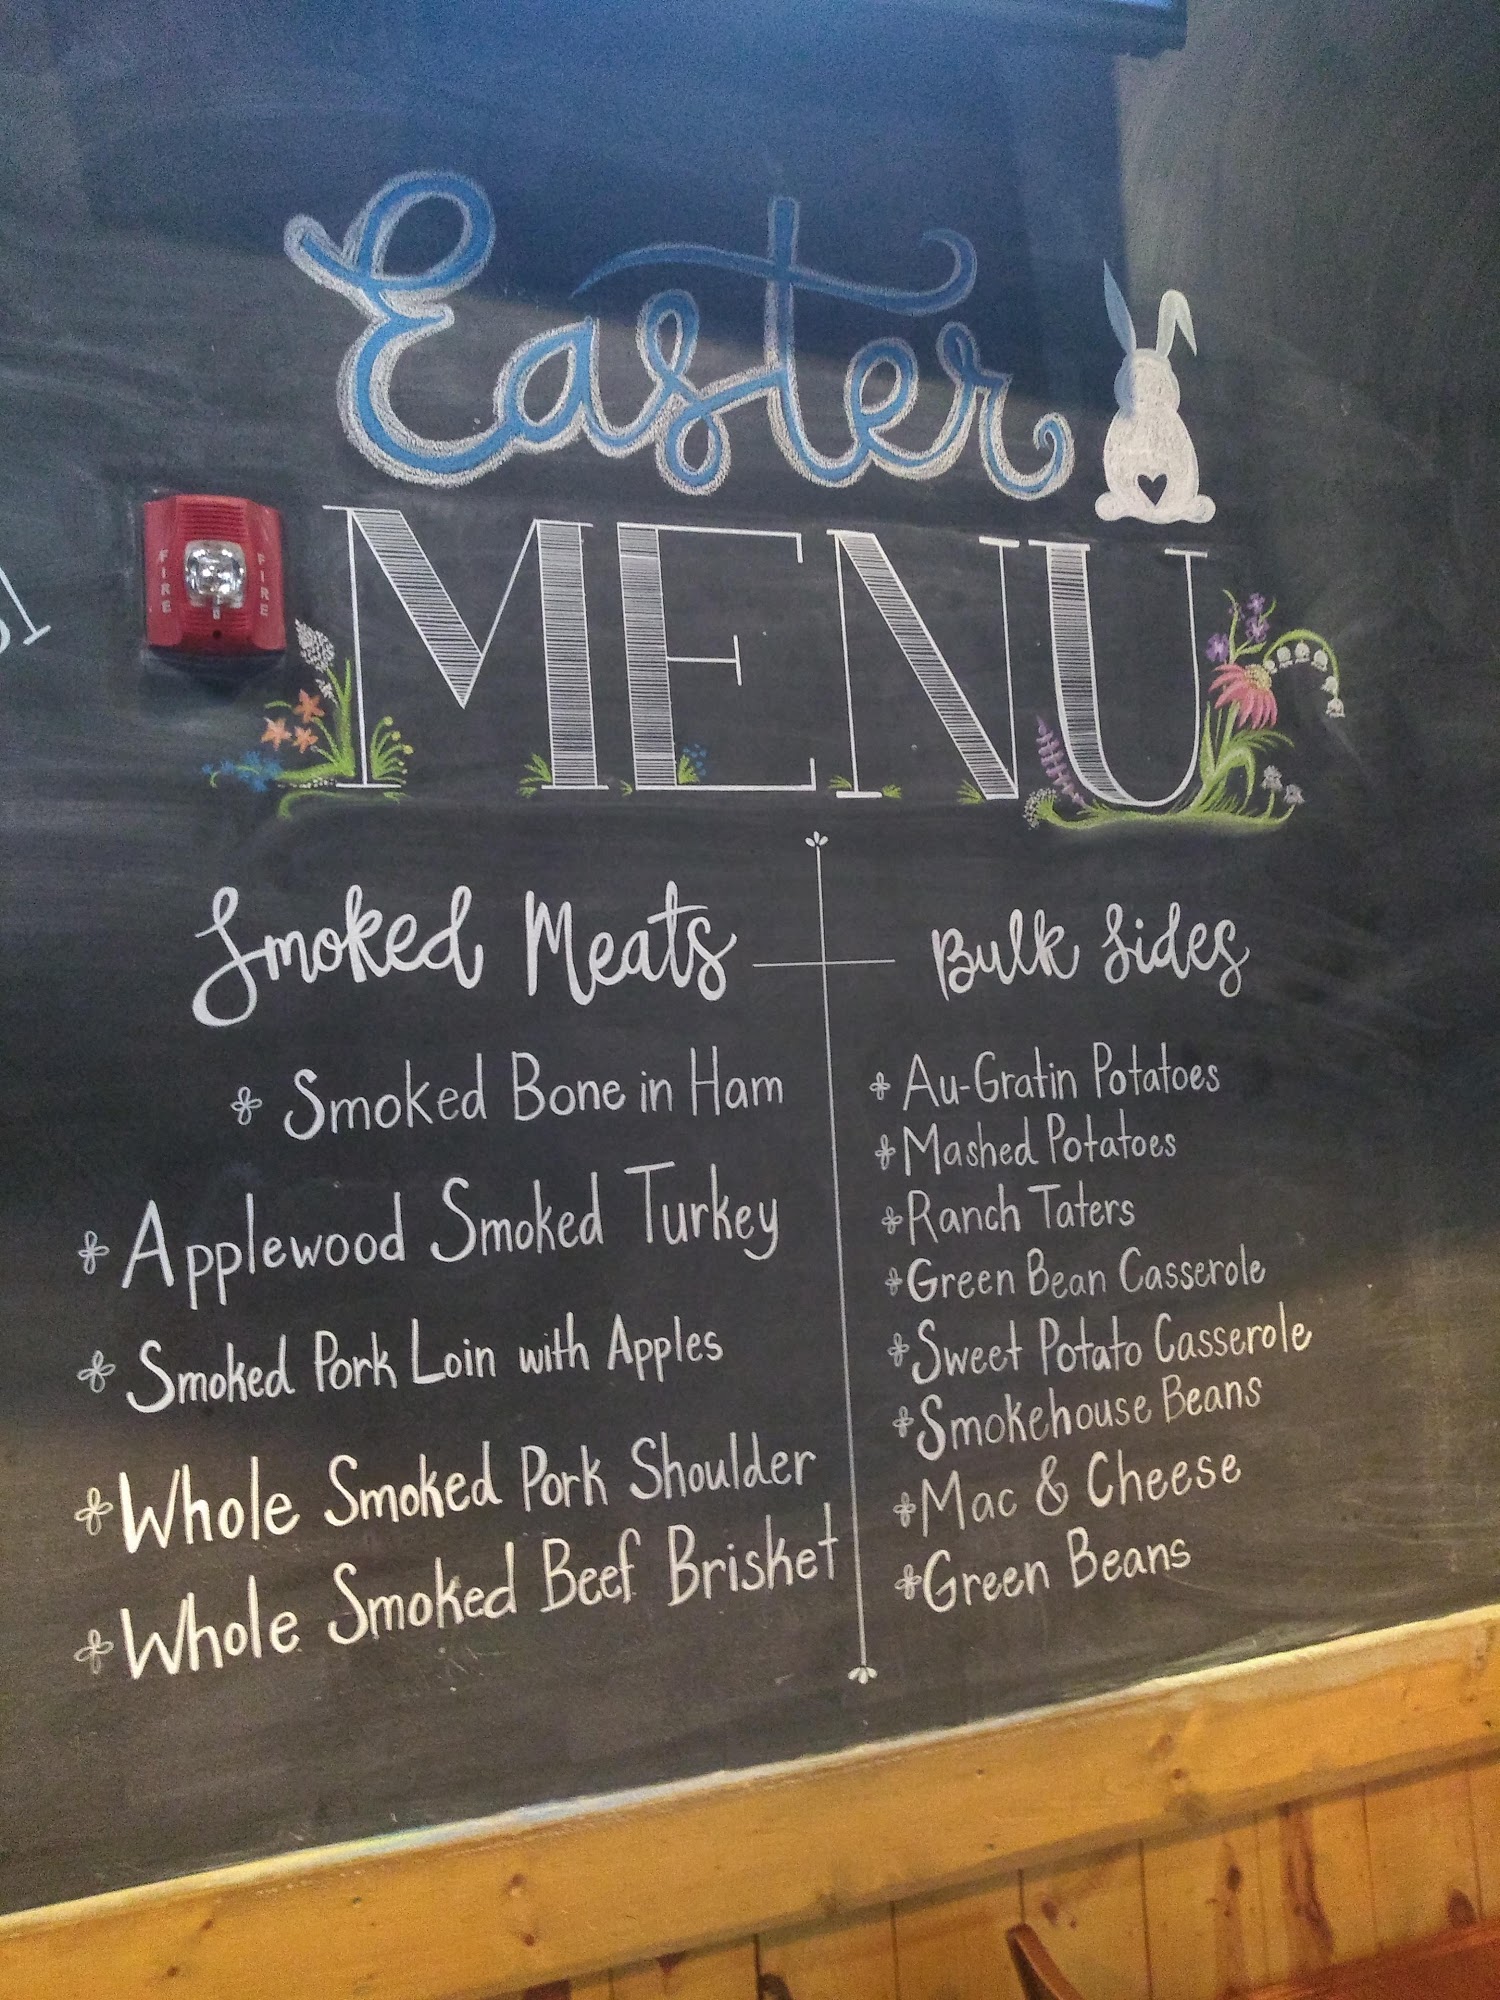 Easter
MENU
FIRE
FIRE
Smoked Meats
Smoked Bone in Ham
Applewood Smoked Turkey
Smoked Pork Loin with Apples
Whole Smoked Pork Shoulder
Whole Smoked Beef Brisket
Bulk Sides
Au-Gratin Potatoes
Mashed Potatoes
Ranch Taters
Green Bean Casserole
Sweet Potato Casserole
Smokehouse Beans
Mac & Cheese
Green Beans